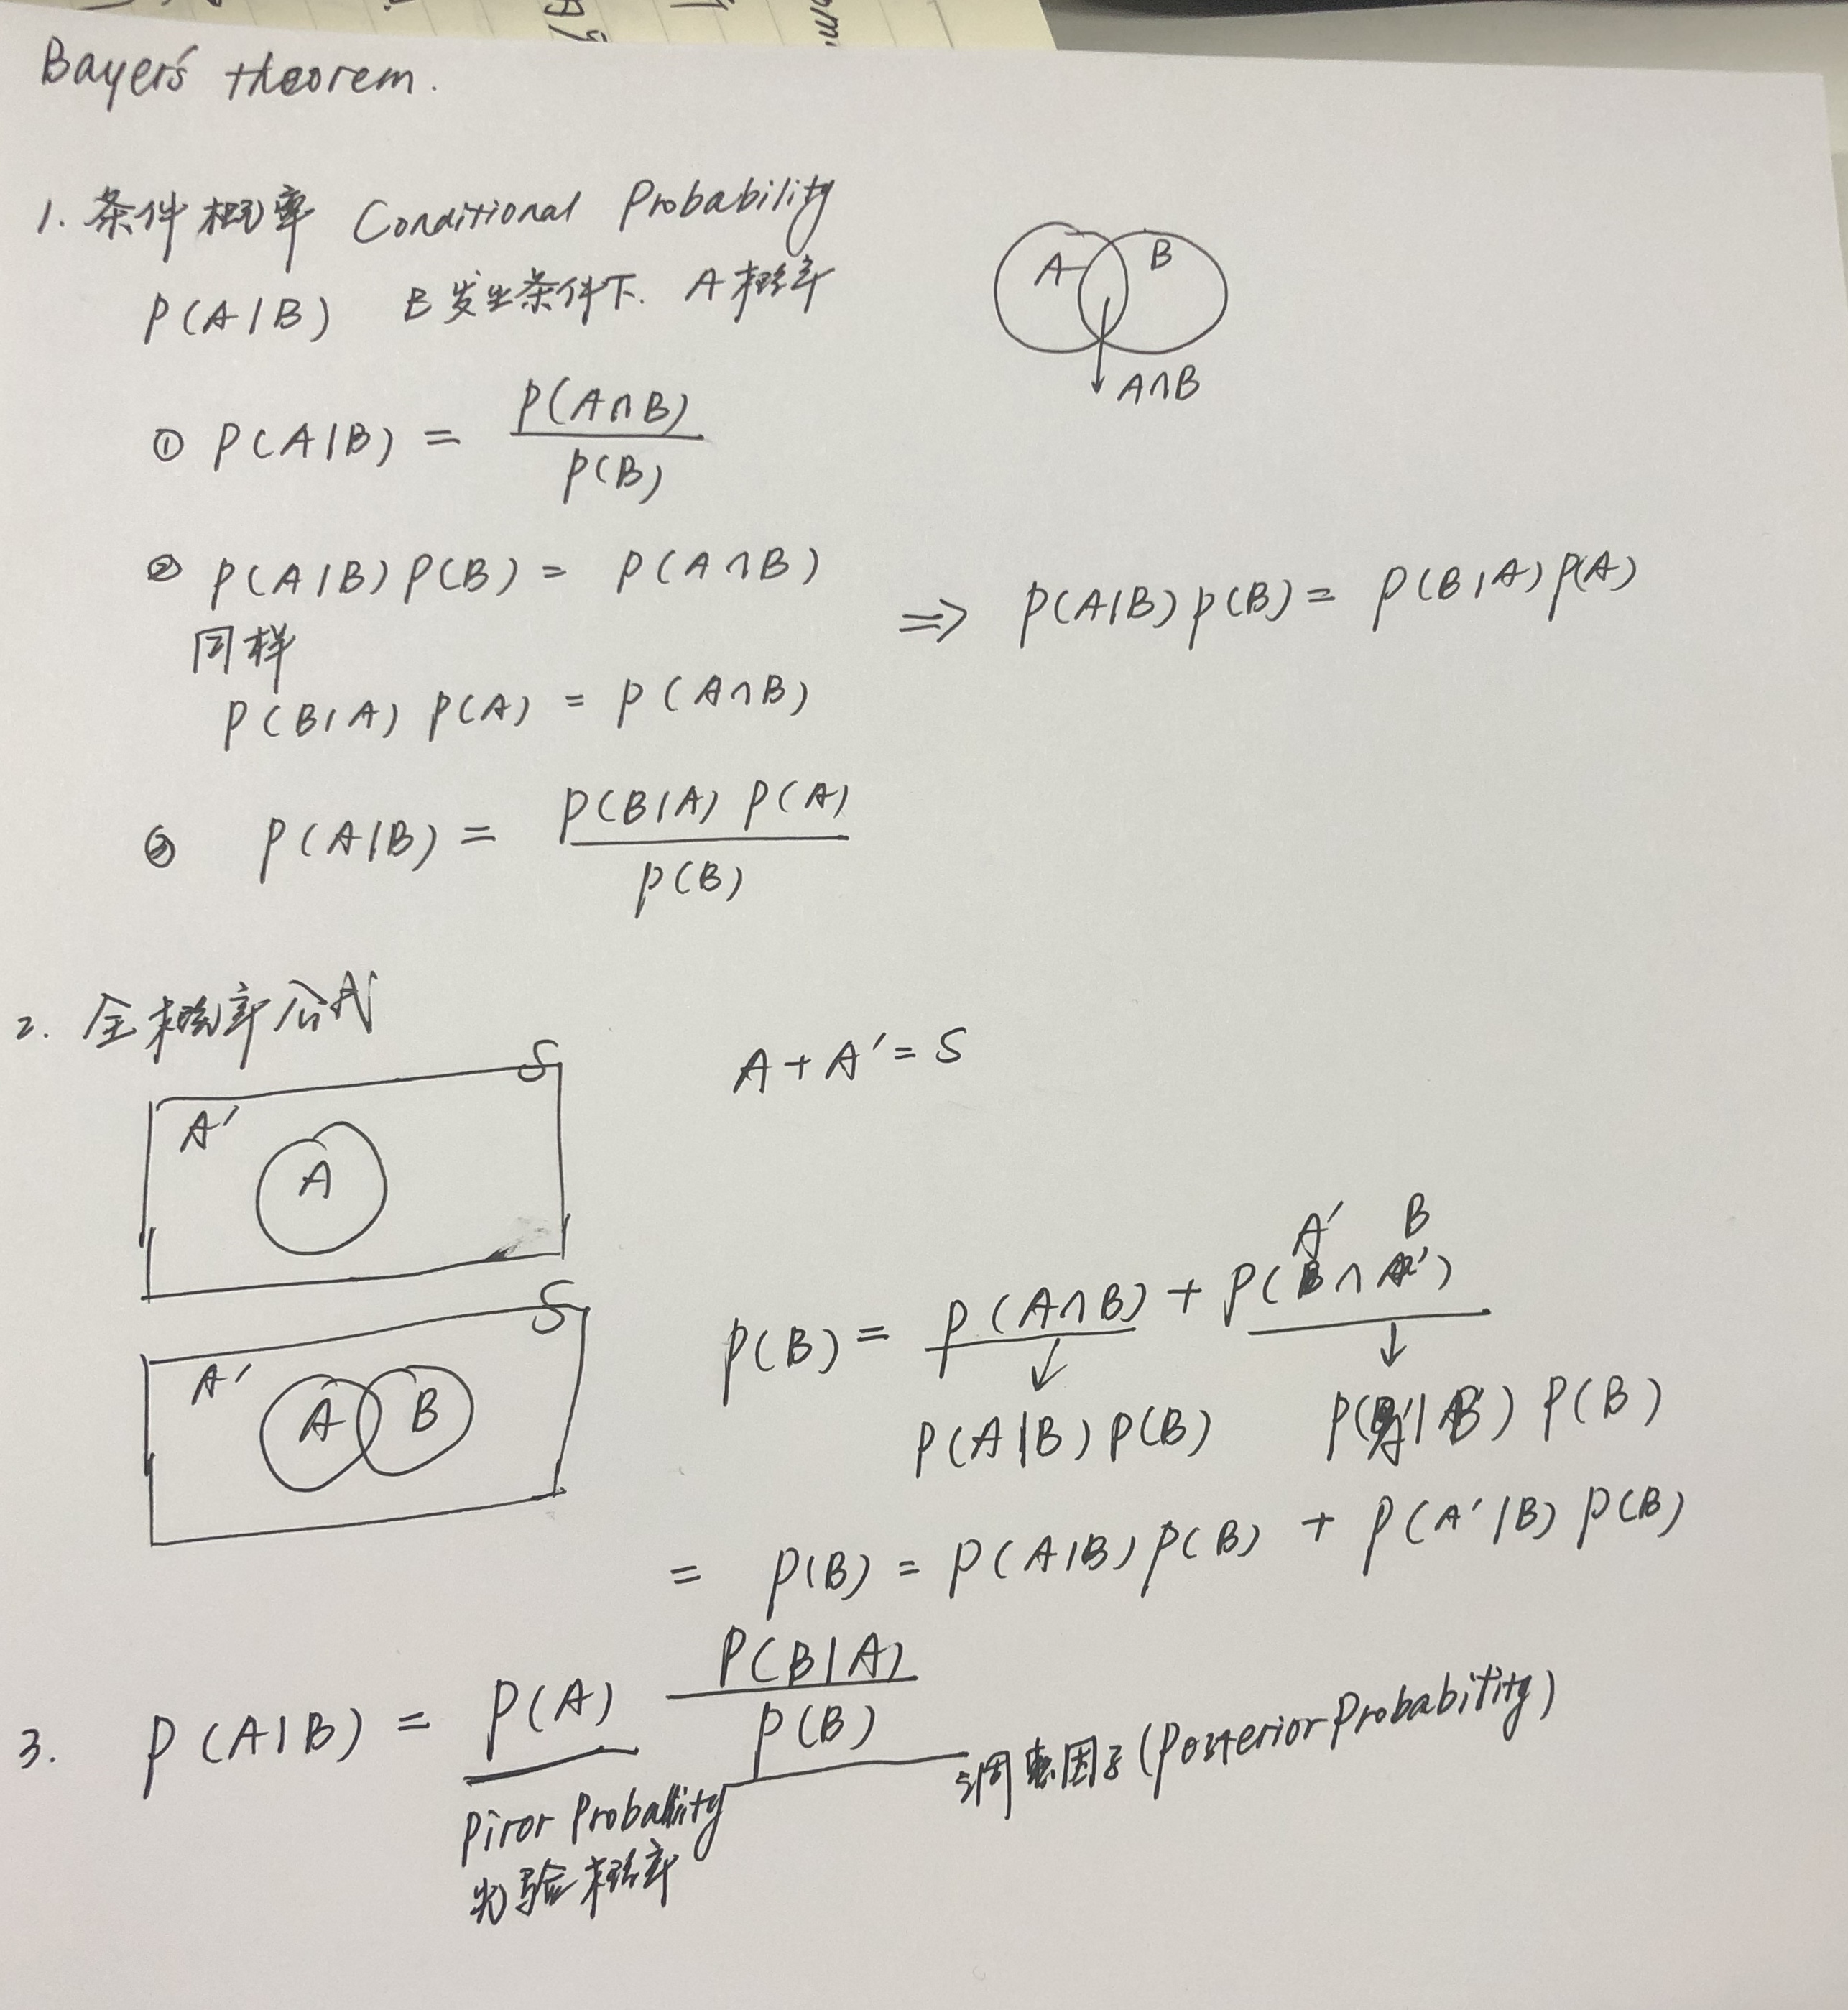 Bayer's theorem.
1. 条件概率 Conditional Probability
P(A|B) B发生条件下. A概率
A B
A∩B
① P(A|B) = P(A∩B) / P(B)
② P(A|B) P(B) = P(A∩B)
同样
P(B|A) P(A) = P(A∩B)
⇒ P(A|B) P(B) = P(B|A) P(A)
③ P(A|B) = P(B|A) P(A) / P(B)
2. 全概率公式
S
A'
A
A + A' = S
S
A'
A B
A' B
P(B) = P(A∩B) + P(B∩A')
P(A|B) P(B) P(A'|B) P(B)
= P(B) = P(A|B) P(B) + P(A'|B) P(B)
3. P(A|B) = P(A) P(B|A) / P(B)
Piror Probability
先验概率
调整因子 (Posterior Probability)